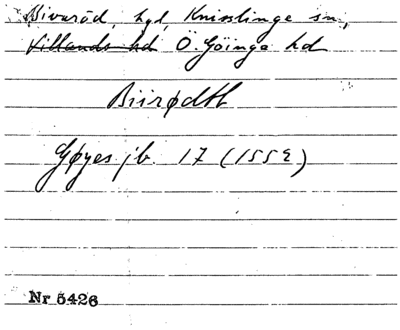 Bivaröd, hgd, Knisslinge sn,
Villands hd Ö. Göinge hd
Biirødtt
Gøyes jb. 17 (1552)
Nr 5426